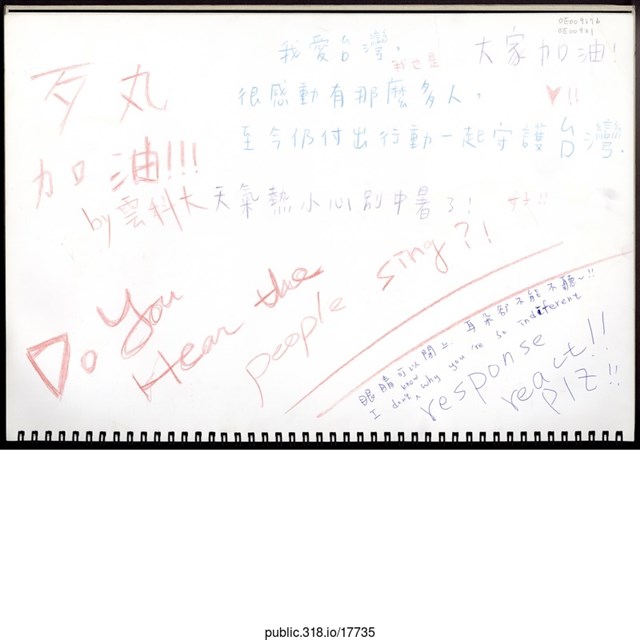 我愛台灣,
我也是
大家加油!
很感動有那麼多人,
♥!!
至今仍付出行動一起守護台灣.
歹丸
加油!!!
by雲科大
天氣熱小心別中暑了!
好!!
Do You
Hear the
people sing?!
眼睛可以閉上,耳朵卻不能不聽~!!
I don't know why you're so indiferent
response
react!!
plz!!
public.318.io/17735